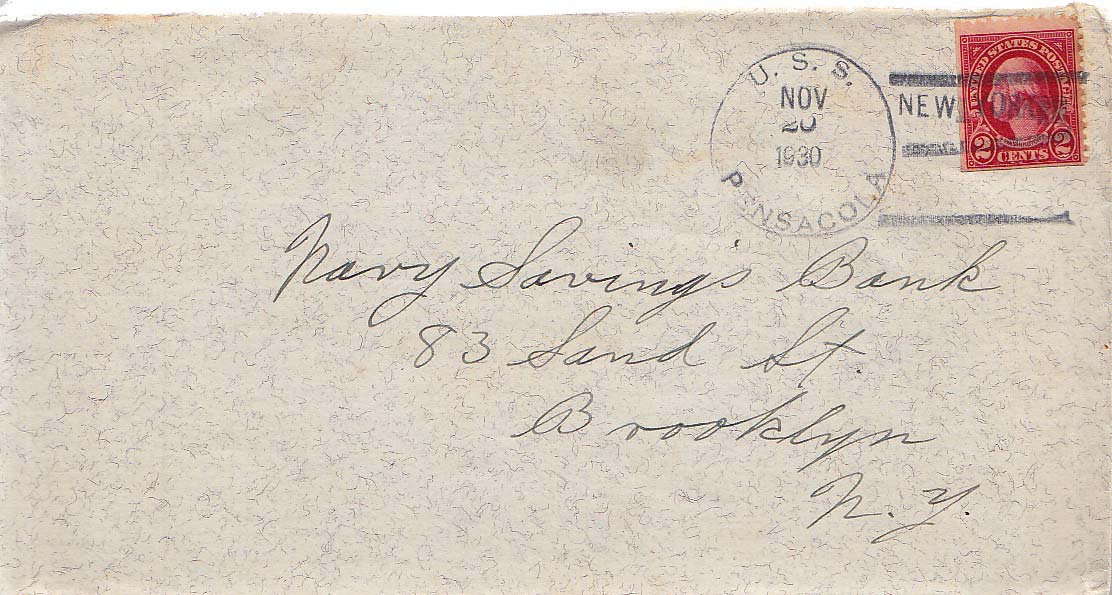 U. S. S.
NOV
20
1930
PENSACOLA
NEW YORK
UNITED STATES POSTAGE
2 CENTS 2
Navy Saving's Bank
83 Sand St.
Brooklyn
N. Y.